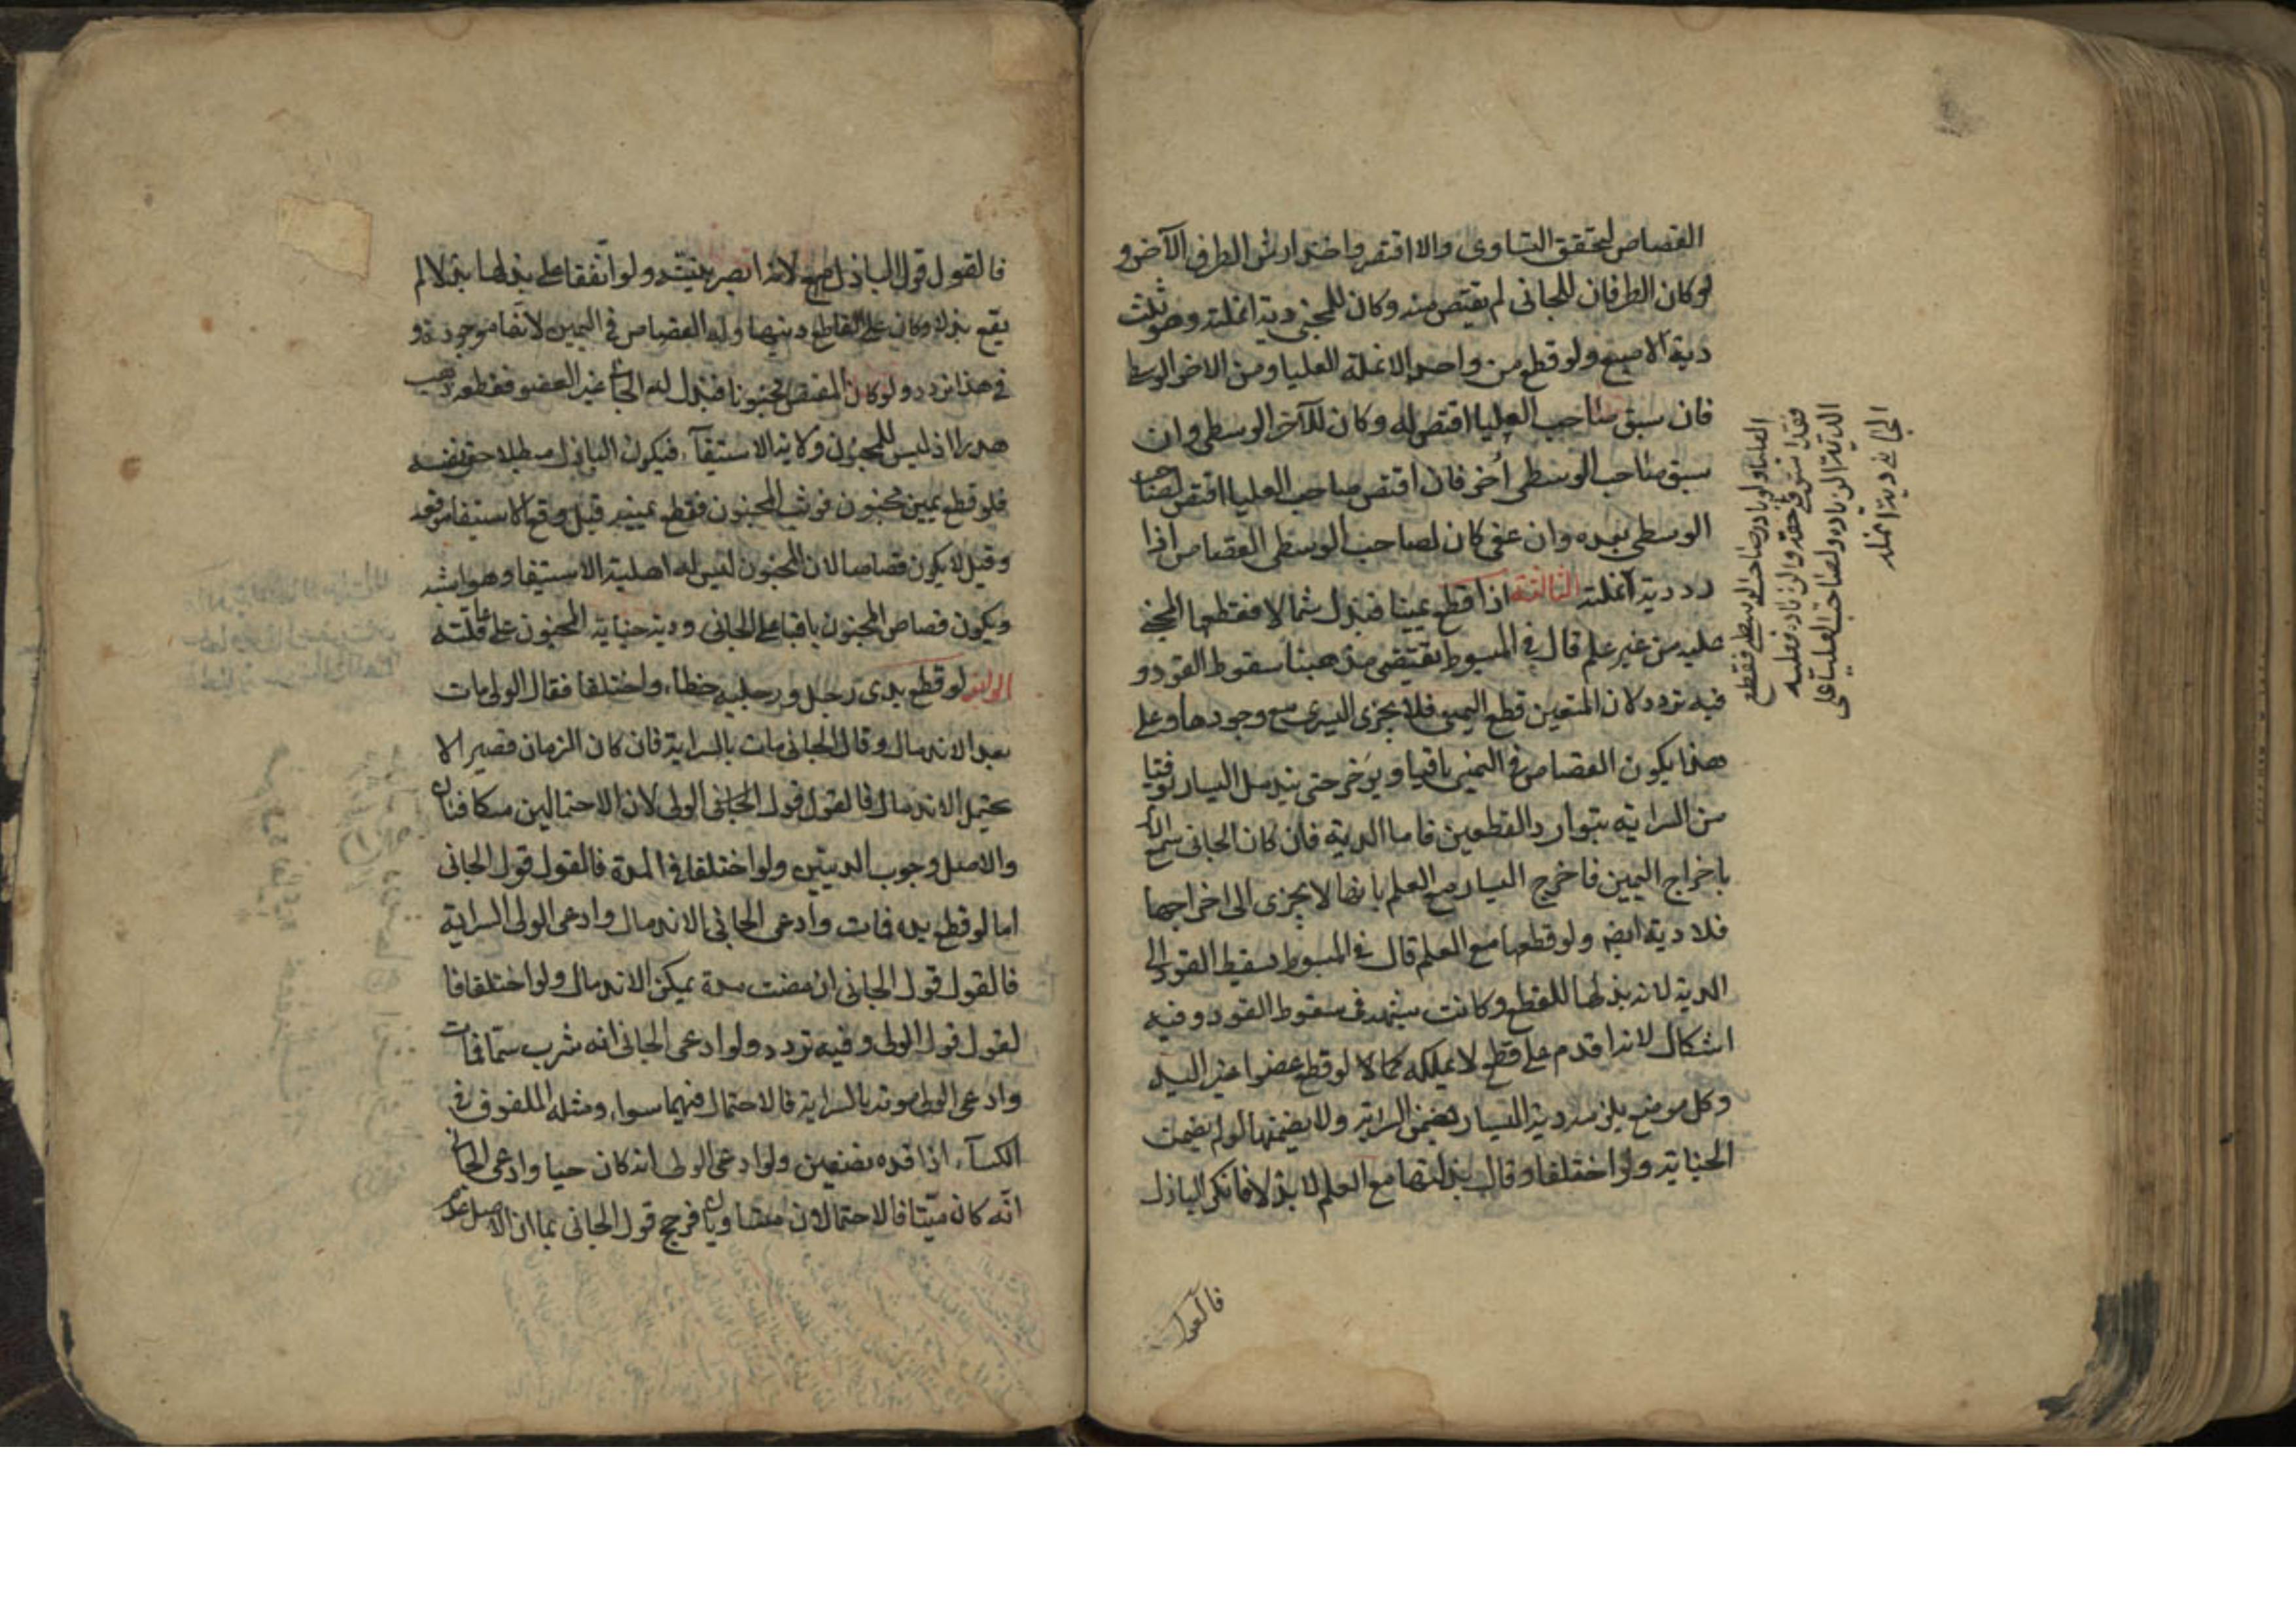 القصاص لتحقق التساوى والا اقتص واخذ ارش الطرف الآخر و
لو كان الطرفان للجانى لم يقتص منه وكان للمجنى دية انملته وهو ثلث
دية الاصبع ولو قطع من واحد الانملة العليا ومن الاخر الوسطى
فان سبق صاحب العليا اقتص له وكان للآخر الوسطى وان
سبق صاحب الوسطى أخر فان اقتص صاحب العليا اقتص لصاحب
الوسطى بعده وان عفى كان لصاحب الوسطى القصاص اذا
رد دية انملته الثالثة اذا قطع يمينا فبذل شمالا فقطعها المجنى
عليه من غير علم قال فى المبسوط يقتضى مذهبنا سقوط القود و
فيه تردد لان المتعين قطع اليمين فلا يجزى اليسرى مع وجودها وعلى
هذا يكون القصاص فى اليمنى باقيا ويؤخر حتى يندمل اليسار توقيا
من السراية بتوارد القطعين فاما الدية فان كان الجانى سمع الامر
باخراج اليمين فاخرج اليسار مع العلم بانها لا يجزى الى اخراجها
فلا دية ايضا ولو قطعها مع العلم قال فى المبسوط سقط القود الى
الدية لانه بذلها للقطع وكانت شبهة فى سقوط القود وفيه
اشكال لانه اقدم على قطع لا يملكه كما لا لو قطع عضوا غير اليد
وكل موضع يلزمه دية اليسار يضمن السراية ولا يضمنها لو لم يضمن
الجناية ولو اختلفا وقال بذلتها مع العلم لا بذلا فانكر الباذل
العليا ولو بادر صاحب الوسطى فقطع
فقد استوفى حقه والزيادة فعليه
الدية الزيادة ولصاحب العليا على
الجانى دية انملة
فالقول
فالقول قول الباذل لانه ابصر بنيته ولو اتفقا على بذلها بدلا لم
يقع بدلا وكان على القاطع ديتها وله القصاص فى اليمين لانها موجودة و
فى هذا تردد ولو كان المقتص مجنونا فبذل له الجانى غير العضو فقطعه ذهب
هدرا اذ ليس للمجنون ولاية الاستيفآء فيكون الباذل مبطلا حق نفسه
فلو قطع يمين مجنون فوثب المجنون فقطع يمينه قيل وقع الاستيفا موقعه
وقيل لا يكون قصاصا لان المجنون ليس له اهلية الاستيفا وهو اشبه
ويكون قصاص المجنون باقيا على الجانى ودية جناية المجنون على عاقلته
لو قطع يدى رجل ورجليه خطأ واختلفا فقال الولى مات
بعد الاندمال وقال الجانى مات بالسراية فان كان الزمان قصيرا لا
يحتمل الاندمال فالقول قول الجانى الولى لان الاحتمالين متكافئان
والاصل وجوب الديتين ولو اختلفا فى المدة فالقول قول الجانى
اما لو قطع يده فمات وادعى الجانى الاندمال وادعى الولى السراية
فالقول قول الجانى ان مضت مدة يمكن الاندمال ولو اختلفا فا
لقول قول الولى وفيه تردد ولو ادعى الجانى انه شرب سما فمات
وادعى الولى موته بالسراية فالاحتمال فيهما سواء ومثله الملفوف فى
الكسآء اذا قده نصفين ولو ادعى الولى انه كان حيا وادعى الجانى
انه كان ميتا فالاحتمالان متساويان فرجح قول الجانى بما ان الاصل عدم